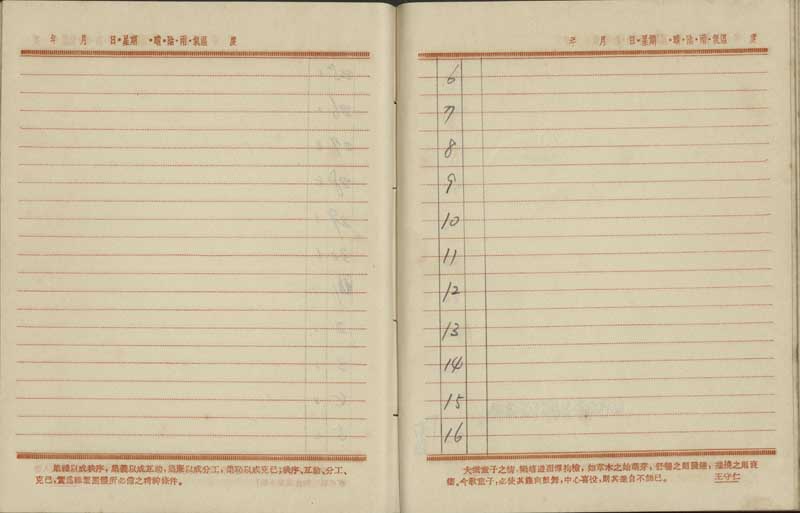 年 月 日·星期 ·晴·陰·雨·氣溫 度
惟禮以成秩序,惟義以成互助,惟廉以成分工,惟恥以成克己;秩序、互助、分工、
克己,實爲維繫團體所必備之精神條件。
年 月 日·星期 ·晴·陰·雨·氣溫 度
6
7
8
9
10
11
12
13
14
15
16
大抵童子之情,樂嬉遊而憚拘檢,如草木之始萌芽,舒暢之則條達,摧撓之則衰
痿。今敎童子,必使其趨向鼓舞,中心喜悅,則其進自不能已。 王守仁